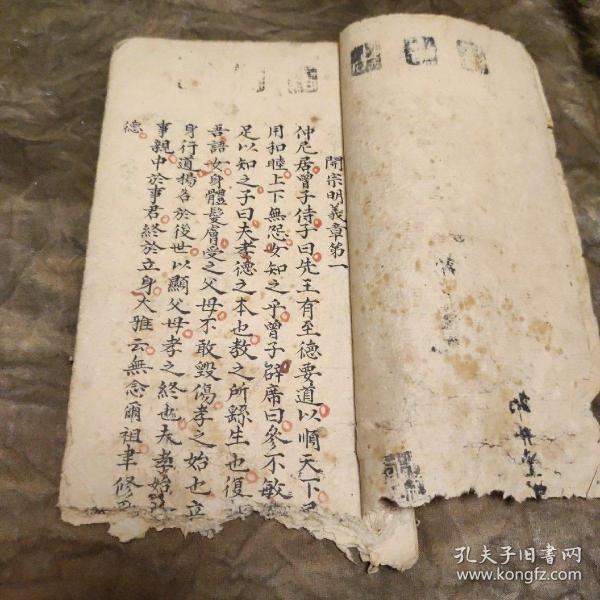 開宗明義章第一
仲尼居曾子侍子曰先王有至德要道以順天下民
用和睦上下無怨女知之乎曾子辟席曰參不敏
足以知之子曰夫孝德之本也教之所繇生也復
吾語女身體髮膚受之父母不敢毀傷孝之始也立
身行道揚名於後世以顯父母孝之終也夫孝始
事親中於事君終於立身大雅云無念爾祖聿修
德
孔夫子旧书网
www.kongfz.com